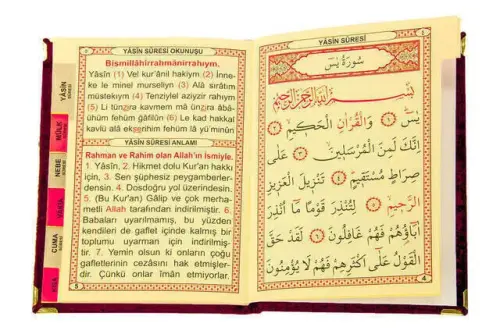 YÂSİN SÛRESİ OKUNUŞU
Bismillâhirrahmânirrahıym.
Yâsîn (1) Vel kur'ânil hakiym. (2) İnne-
ke le minel murseliyn. (3) Alâ sırâtım
müstekıym (4) Tenziylel aziyzir rahıym
(5) Li tünzira kavmem mâ ünzira âbâ-
ühüm fehüm gāfilûn (6) Le kad hakkal
kavlü alâ ekserihim fehüm lâ yü'minûn
YÂSİN SÛRESİ ANLAMI
Rahman ve Rahim olan Allah'ın ismiyle.
1. Yâsîn, 2. Hikmet dolu Kur'an hakkı
için, 3. Sen şüphesiz peygamberler-
densin. 4. Dosdoğru yol üzerindesin.
5. (Bu Kur'an) Gâlip ve çok merha-
metli Allah tarafından indirilmiştir. 6.
Babaları uyarılmamış, bu yüzden
kendileri de gaflet içinde kalmış bir
toplumu uyarman için indirilmiş-
tir. 7. Yemin olsun ki onların çoğu
gafletlerinin cezasını hak etmişler-
dir. Çünkü onlar iman etmiyorlar.
5
YÂSİN
SÛRESİ
MÜLK
NEBE
VAKIA
CUMA
KISA
YÂSİN SÛRESİ
سُورَةُ يٰسٓ
بِسْمِ اللّٰهِ الرَّحْمٰنِ الرَّحِيمِ
يٰسٓ ﴿١﴾ وَالْقُرْاٰنِ الْحَكِيمِ ﴿٢﴾
اِنَّكَ لَمِنَ الْمُرْسَلِينَ ﴿٣﴾ عَلٰى
صِرَاطٍ مُسْتَقِيمٍ ﴿٤﴾ تَنْزِيلَ الْعَزِيزِ
الرَّحِيمِ ﴿٥﴾ لِتُنْذِرَ قَوْمًا مَٓا اُنْذِرَ
اٰبَٓاؤُهُمْ فَهُمْ غَافِلُونَ ﴿٦﴾ لَقَدْ حَقَّ
الْقَوْلُ عَلٰٓى اَكْثَرِهِمْ فَهُمْ لَا يُؤْمِنُونَ
4